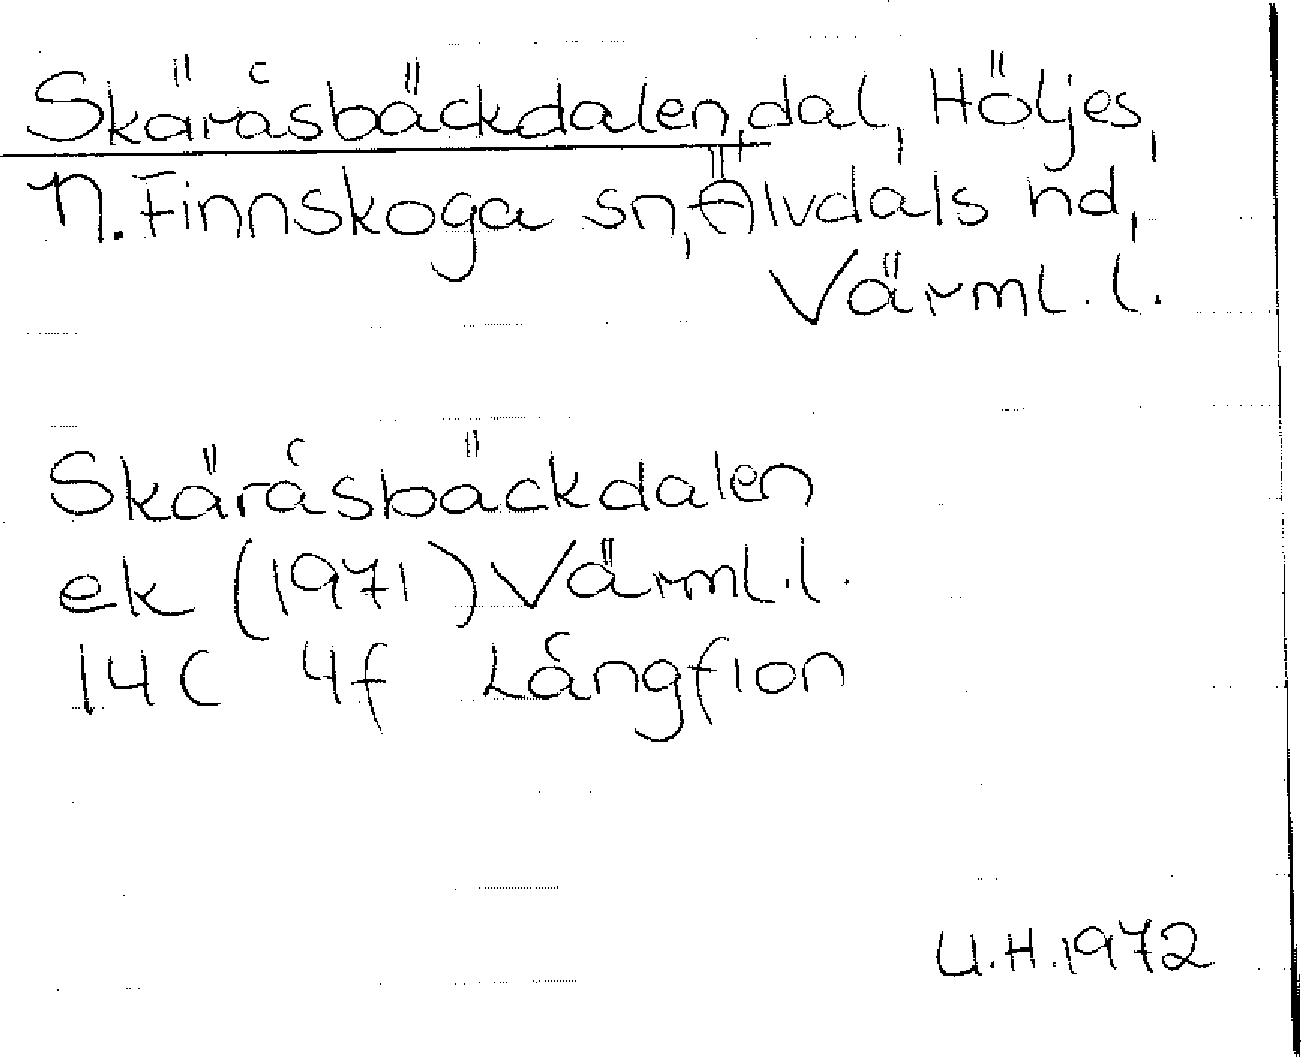 Skäråsbäckdalen, dal, Höljes,
N. Finnskoga sn, Älvdals hd,
Värml. l.
Skäråsbäckdalen
ek (1971) Värml. l.
14C 4f Långflon
U.H. 1972